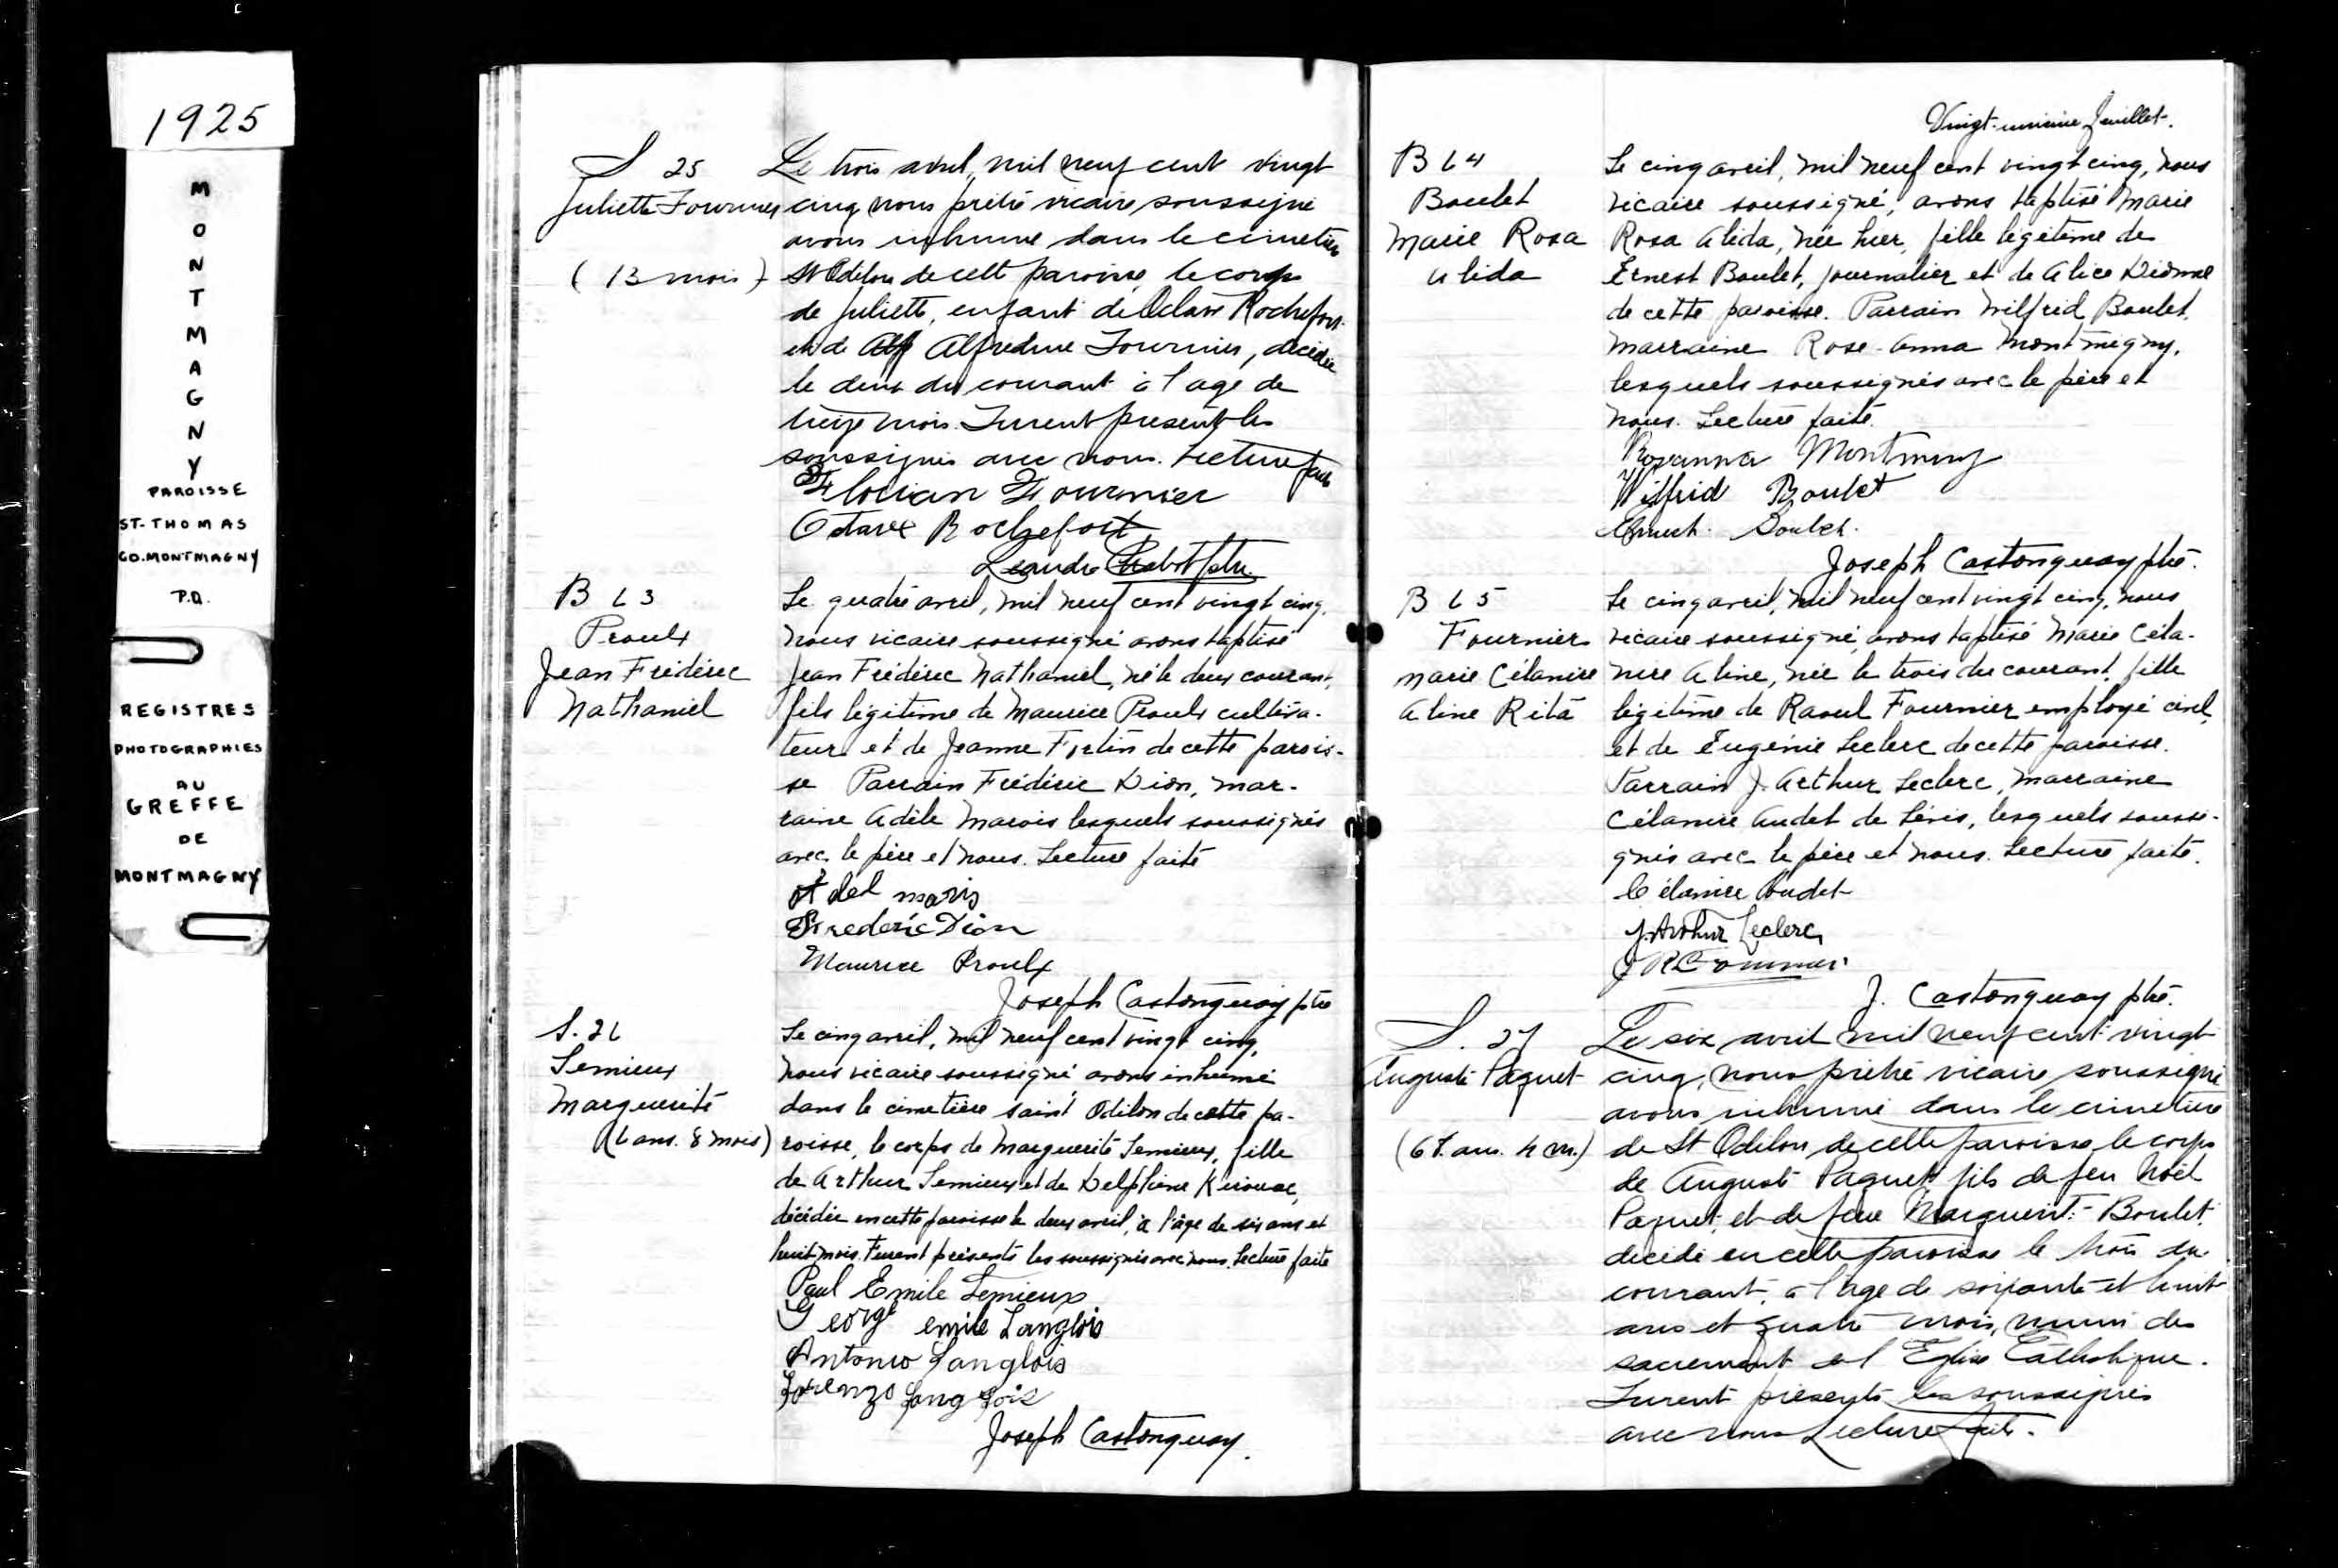 1925
MONTMAGNY
PAROISSE
ST-THOMAS
CO. MONTMAGNY
P.Q.
REGISTRES
PHOTOGRAPHIES
AU
GREFFE
DE
MONTMAGNY
S 25
Juliette Fournier
(13 mois)
Le trois avril, mil neuf cent vingt
cinq nous prêtre vicaire soussigné
avons inhumé dans le cimetière
St Odilon de cette paroisse, le corps
de Juliette, enfant de Octave Rochefort
et de Alf Alfredine Fournier, décédée
le deux du courant à l'age de
treize mois. Furent présents les
soussignés avec nous. Lecture faite
Florian Fournier
Octave Rochefort
Leandre Chabot ptre.
B 63
Proulx
Jean Frédéric
Nathaniel
Le quatre avril, mil neuf cent vingt cinq,
nous vicaire soussigné avons baptisé
Jean Frédéric Nathaniel, né le deux courant,
fils légitime de Maurice Proulx cultiva-
teur et de Jeanne Fortin de cette parois-
se Parrain Frédéric Dion, mar-
raine Adèle Marois lesquels soussignés
avec le père et nous. Lecture faite
Adel maris
Frederic Dion
Maurice Proulx
Joseph Castonguay ptre
S. 26
Lemieux
Marguerite
(6 ans. 8 mois)
Le cinq avril, mil neuf cent vingt cinq,
nous vicaire soussigné avons inhumé
dans le cimetière saint Odilon de cette pa-
roisse, le corps de Marguerite Lemieux, fille
de Arthur Lemieux et de Delphine Kirouac,
décédée en cette paroisse le deux avril, à l'âge de six ans et
huit mois. Furent présents les soussignés avec nous. Lecture faite
Paul Emile Lemieux
George emile Langlois
Antonio Langlois
Lorenzo Langlois
Joseph Castonguay.
Vingt-unième feuillet.
B 64
Boulet
Marie Rosa
Alida
Le cinq avril, mil neuf cent vingt cinq, nous
vicaire soussigné, avons baptisé Marie
Rosa Alida, née hier, fille légitime de
Ernest Boulet, journalier et de Alice Dionne
de cette paroisse. Parrain Wilfrid Boulet.
Marraine Rose-Anna Montmigny,
lesquels soussignés avec le père et
nous. Lecture faite.
Rosanna Montminy
Wilfrid Boulet
Ernest Boulet.
Joseph Castonguay ptre.
B 65
Fournier
Marie Célanire
Aline Rita
Le cinq avril, mil neuf cent vingt cinq, nous
vicaire soussigné, avons baptisé Marie Céla-
nire Aline, née le trois du courant, fille
légitime de Raoul Fournier employé civil,
et de Eugénie Leclerc de cette paroisse.
Parrain J. Arthur Leclerc, marraine
Célanire Audet de Lévis, lesquels soussi-
gnés avec le père et nous. Lecture faite.
Célanire Audet
J. Arthur Leclerc
J. Castonguay ptre.
S. 27
Auguste Paquet
(68. ans. 4 m.)
Le six avril mil neuf cent vingt
cinq, nous prêtre vicaire soussigné
avons inhumé dans le cimetière
de St Odilon, de cette paroisse le corps
de Auguste Paquet, fils de feu Noël
Paquet, et de feue Marguerite Boulet,
décédé en cette paroisse le trois du
courant, à l'age de soixante et huit
ans et quatre mois, muni des
sacrement de l'Eglise Catholique.
Furent présents les soussignés
avec nous Lecture faite.